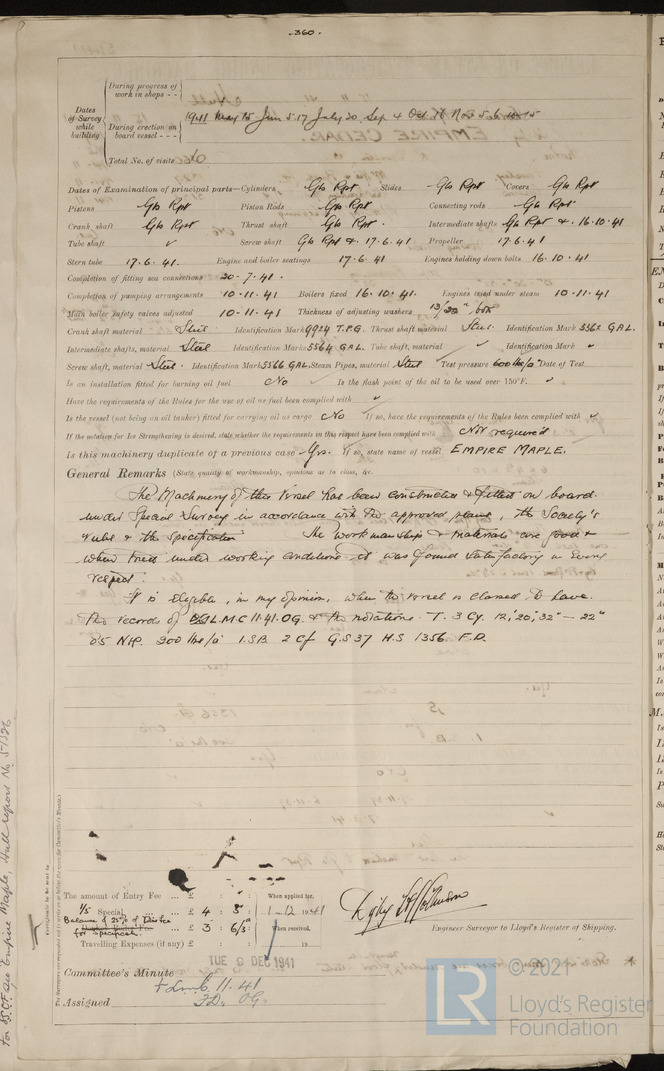 360.
Dates of Survey while building
During progress of work in shops - -
During erection on board vessel - - -
1941 May 15 Jun 5.17 July 20, Sep 4 Oct 16 Nov 5.6.10.15
Total No. of visits
Dates of Examination of principal parts—Cylinders Gls Rpt Slides Gls Rpt Covers Gls Rpt
Pistons Gls Rpt Piston Rods Gls Rpt Connecting rods Gls Rpt
Crank shaft Gls Rpt Thrust shaft Gls Rpt. Intermediate shafts Gls Rpt &. 16.10.41
Tube shaft ✓ Screw shaft Gls Rpt &. 17.6.41 Propeller 17.6.41
Stern tube 17.6.41. Engine and boiler seatings 17.6.41 Engines holding down bolts 16.10.41
Completion of fitting sea connections 20.7.41.
Completion of pumping arrangements 10.11.41 Boilers fixed 16.10.41. Engines tried under steam 10.11.41
Main boiler safety valves adjusted 10.11.41 Thickness of adjusting washers
Crank shaft material Steel Identification Mark 9924 T.P.G. Thrust shaft material Steel. Identification Mark 5562 GAL.
Intermediate shafts, material Steel Identification Marks 5564 GAL. Tube shaft, material ✓ Identification Mark ✓
Screw shaft, material Steel. Identification Mark 5566 GAL. Steam Pipes, material Steel Test pressure 600 lbs/□" Date of Test
Is an installation fitted for burning oil fuel No Is the flash point of the oil to be used over 150°F. ✓
Have the requirements of the Rules for the use of oil as fuel been complied with ✓
Is the vessel (not being an oil tanker) fitted for carrying oil as cargo No If so, have the requirements of the Rules been complied with ✓
If the notation for Ice Strengthening is desired, state whether the requirements in this respect have been complied with Not required
Is this machinery duplicate of a previous case Yes. If so, state name of vessel EMPIRE MAPLE.
General Remarks (State quality of workmanship, opinions as to class, &c.
The Machinery of this Vessel has been constructed & fitted on board
under Special Survey in accordance with the approved plans, the Society's
rules & the Specification The workmanship & materials are good &
when tried under working conditions it was found satisfactory in every
respect.
It is eligible, in my opinion, when the vessel is classed to have
the records of L.M.C 11.41. O.G. & the notations. T. 3 Cy. 12", 20", 32" — 22"
05 NHP. 200 lbs/□" 1.S.B. 2 Cf G.S 37 H.S 1356 F.D.
The amount of Entry Fee ... £ : : When applied for,
1/5 Special ... ... £ 4 : 3 : 1-12 1941
Balance of 25% of
for Specification £ 3 6/3 When received,
Travelling Expenses (if any) £ : : 19
Engineer Surveyor to Lloyd's Register of Shipping.
TUE 9 DEC 1941
Committee's Minute
+ Lmc 11.41
Assigned F.D. OG.
For B.O.F. see Empire Maple, Hull report No 51396
© 2021
LR
Lloyd's Register
Foundation